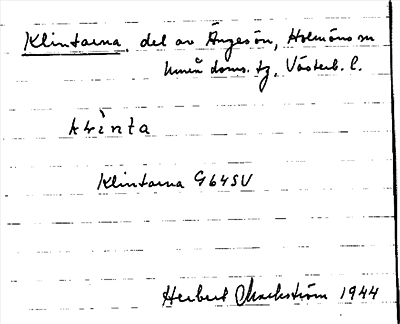 Klintarna, del av Ängesön, Holmöns sn
Umeå doms. tg, Västerb. l.
klìnta
Klintarna G64SV
Herbert Markström 1944